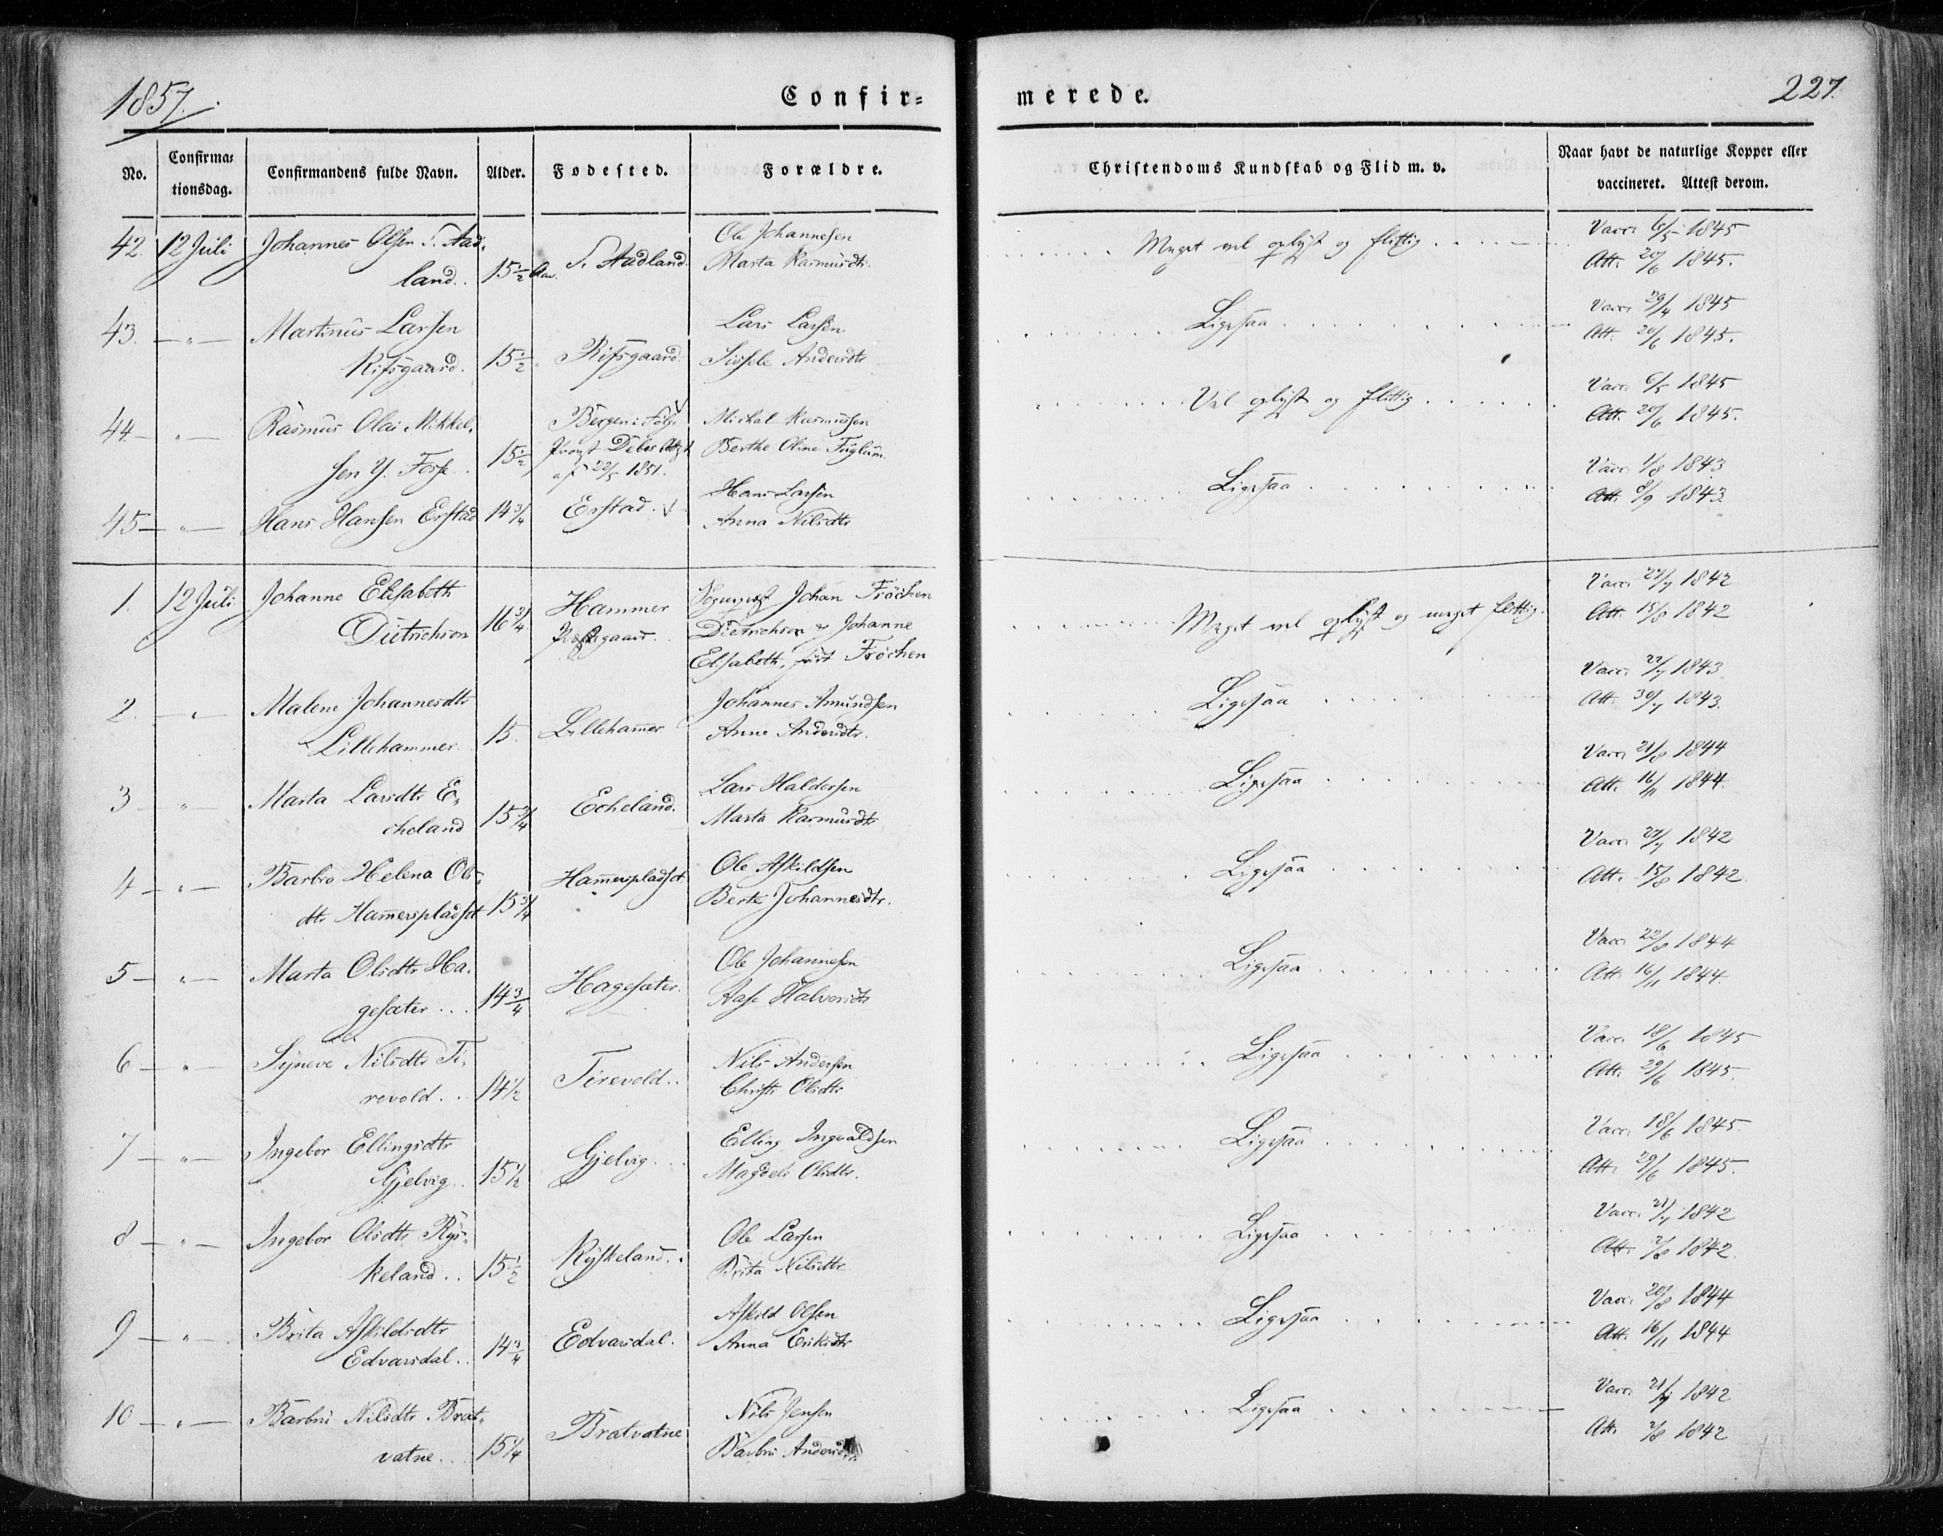 1857.
Confir=
merede.
227.
No.
Confirma=
tionsdag.
Confirmandens fulde Navn.
Alder.
Fødested.
Forældre.
Christendoms Kundskab og Flid m. v.
Naar havt de naturlige Kopper eller
vaccineret. Attest derom.
42. 12 Juli Johannes Olsen S. Aad-
land. 15 1/2 Aar. S. Aadland.
Ole Johannesen
Marta Rasmusdtr.
Meget vel oplyst og flittig
Vacc. 6/5 1845
Att. 20/6 1845.
43. — " — Martinus Larsen
Risgaard. 15 1/2 Risgaard.
Lars Larsen
Sissele Andersdtr
Ligesaa
Vacc. 29/4 1845
Att. 20/6 1845.
44 — " — Rasmus Olai Mikkel-
sen Y. Fosse. 15 1/2
Bergen i Følge
Provst Debes Attest
af 20/5 1851.
Michel Rasmussen
Berthe Oline Fuglum
Vel oplyst og flittig
Vacc. 6/5 1845
Att. 20/6 1845.
45 — " — Hans Hansen Erstad 14 3/4 Erstad.
Hans Larsen
Anna Nilsdtr
Ligesaa
Vacc. 1/8 1843
Att. 8/9 1843
1. 12 Juli Johanne Elisabeth
Dietrichson 16 3/4
Hammer
Præstgaard
Sognepræst Johan Fröchen
Dietrichson & Johanne
Elisabeth, født Fröchen
Meget vel oplyst og meget flittig.
Vacc. 27/7 1842
Att. 15/8 1842
2. — " — Malene Johannesdtr
Lillehammer 15. Lillehamer
Johannes Amundsen
Anne Andersdtr.
Ligesaa
Vacc. 22/7 1843
Att. 30/7 1843.
3 — " — Marta Larsdtr E-
cheland 15 3/4 Echeland.
Lars Haldorsen
Marta Rasmusdtr
Ligesaa
Vacc. 21/8 1844
Att. 16/11 1844.
4 — " — Barbro Helena Ols-
dtr Hamersplasset 15 3/4 Hamerspladset
Ole Askildsen
Berte Johannesdtr.
Ligesaa
Vacc. 27/7 1842
Att. 15/8 1842.
5 — " — Marta Olsdtr Ha-
gesæter 14 3/4 Hagesæter.
Ole Johannesen
Aase Halvorsdtr
Ligesaa
Vacc. 22/8 1844
Att. 16/11 1844.
6 — " — Syneve Nilsdtr Ti-
revold. 14 1/2 Tirevold.
Nils Andersen
Christi Olsdtr
Ligesaa
Vacc. 18/6 1845
Att. 29/6 1845.
7 — " — Ingebor Ellingsdtr
Gjelvig. 15 1/2 Gjelvig.
Elling Ingvaldsen
Magdeli Olsdtr.
Ligesaa
Vacc. 18/6 1845.
Att. 29/6 1845.
8 — " — Ingebor Olsdtr Rys-
keland. 15 1/2 Ryskeland.
Ole Larsen
Brita Nilsdtr
Ligesaa
Vacc. 21/7 1842
Att. 2/8 1842.
9 — " — Brita Askildsdtr
Edvarsdal. 14 3/4 Edvarsdal.
Askild Olsen
Anna Eriksdtr
Ligesaa
Vacc. 20/8 1844
Att. 16/11 1844
10 — " — Barbru Nilsdtr Brat-
vatne. 15 1/4 Bratvatne
Nils Jensen
Barbru Andersdtr
Ligesaa
Vacc. 21/7 1842
Att. 2/8 1842